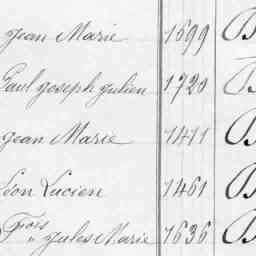 Jean Marie 1599 B
Paul Joseph Julien 1720 B
Jean Marie 1411 B
Léon Lucien 1461 B
Fçois „ Jules Marie 1636 B